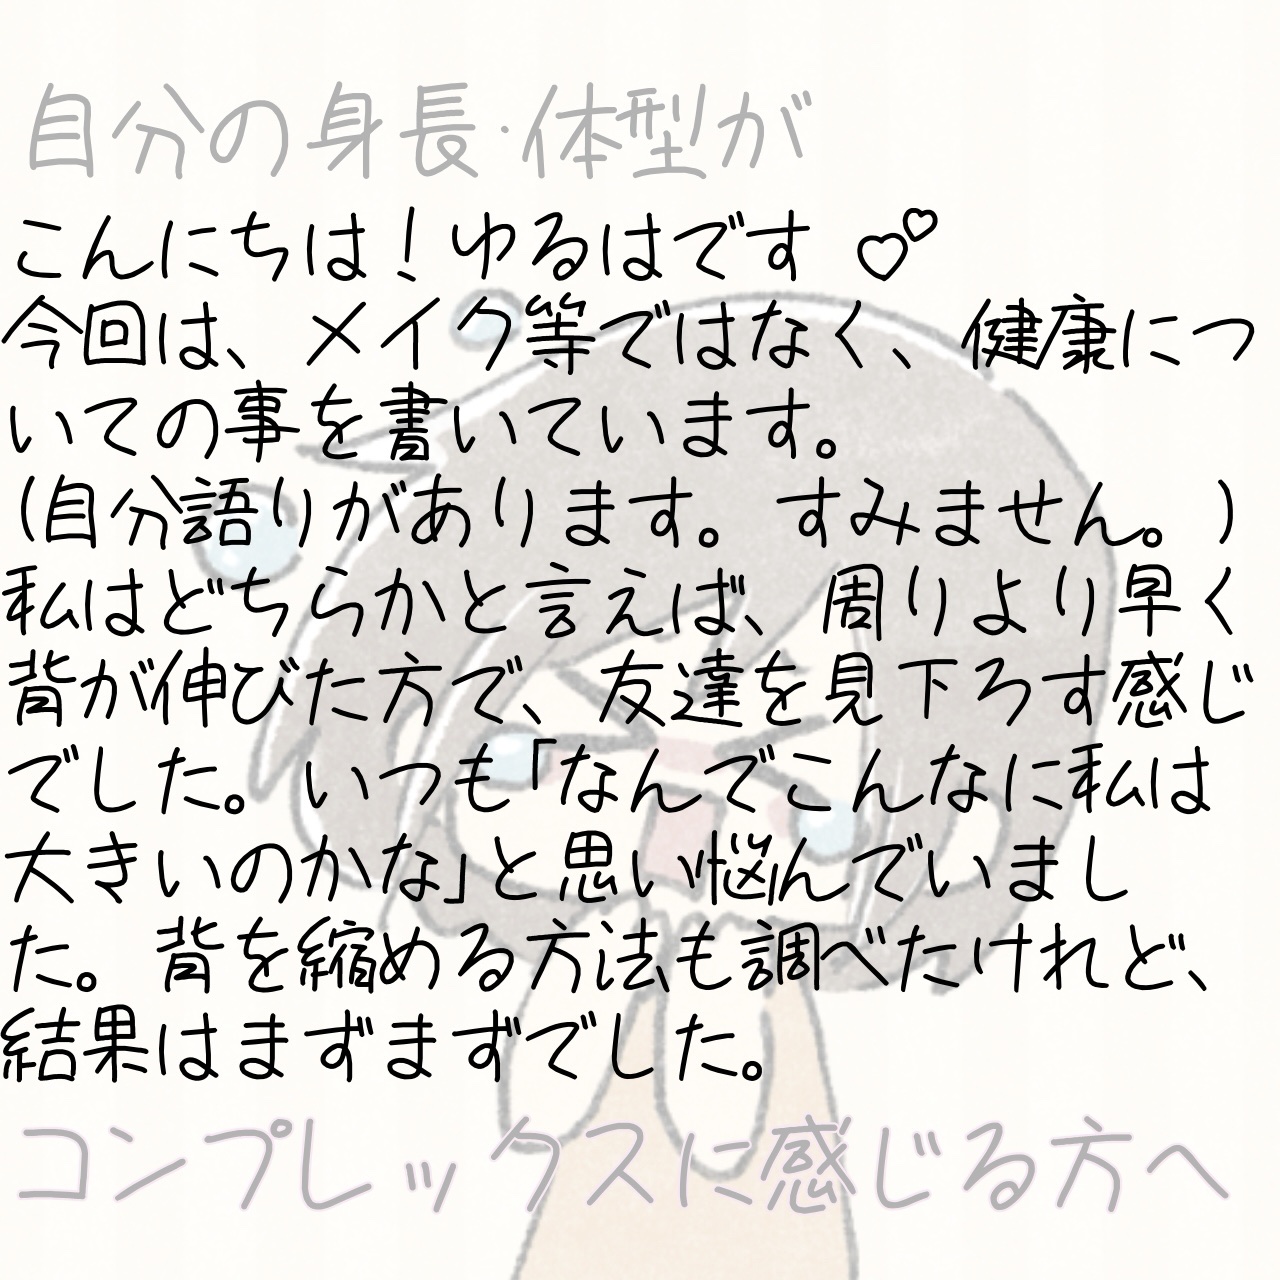 自分の身長·体型が
こんにちは！ゆるはです 💕
今回は、メイク等ではなく、健康につ
いての事を書いています。
(自分語りがあります。すみません。)
私はどちらかと言えば、周りより早く
背が伸びた方で、友達を見下ろす感じ
でした。いつも「なんでこんなに私は
大きいのかな」と思い悩んでいまし
た。背を縮める方法も調べたけれど、
結果はまずまずでした。
コンプレックスに感じる方へ